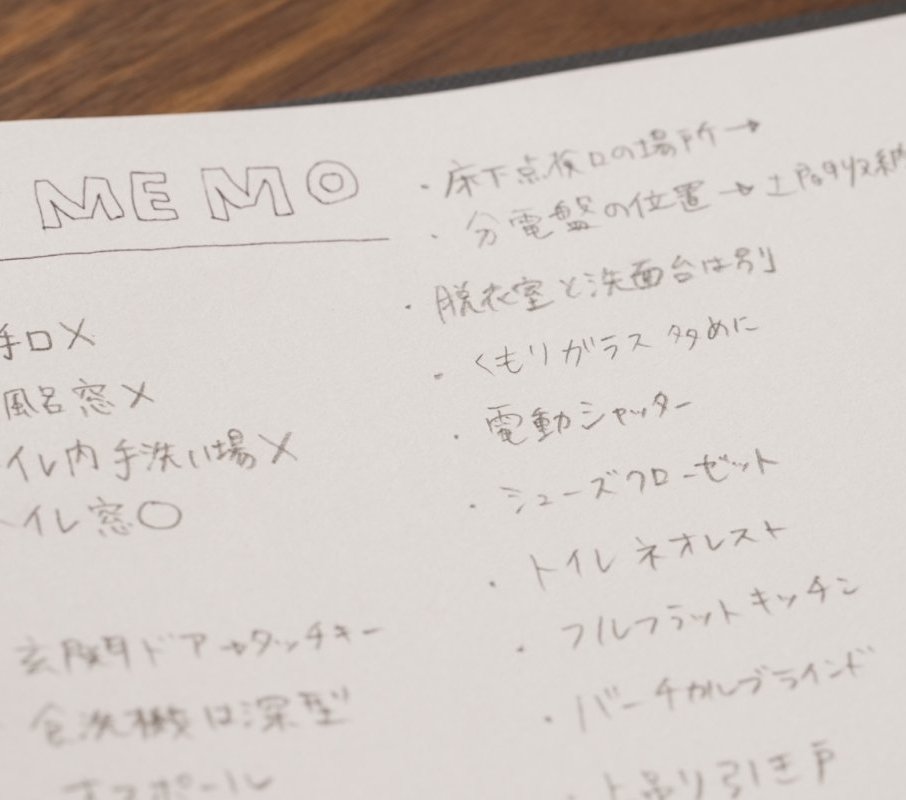 MEMO
手口×
風呂窓×
イレ内手洗い場×
イレ窓○
玄関ドア→タッチキー
食洗機は深型
・床下点検口の場所→
・分電盤の位置→
・脱衣室と洗面台は別
・くもりガラス多めに
・電動シャッター
・シューズクローゼット
・トイレ ネオレスト
・フルフラットキッチン
・バーチカルブラインド
・上吊り引き戸